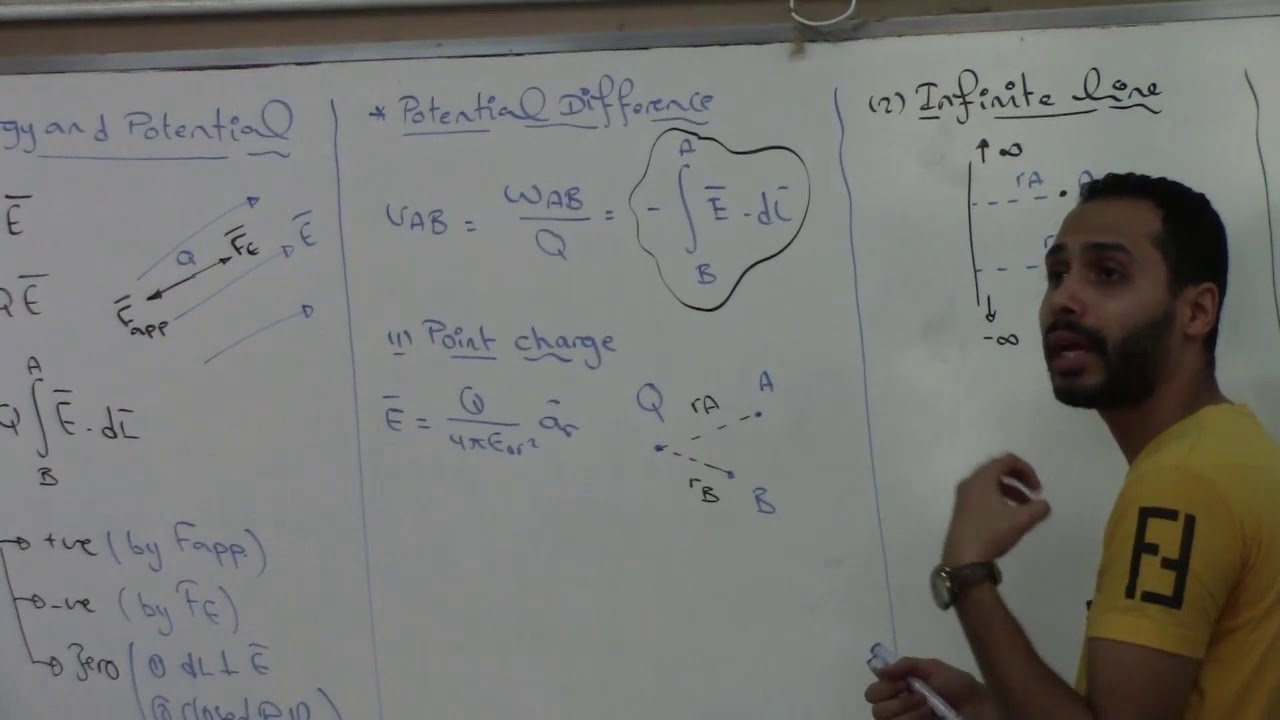 gy and Potential
E̅
QE̅
Q
F̅E
E̅
F̅app
A
Q ∫ E̅ . dL̅
B
+ve (by Fapp.)
-ve (by F̅E)
Zero (① dL ⊥ E̅
② closed
* Potential Difference
VAB = WAB / Q = - ∫ E̅ . dL̅
A
B
(1) Point charge
E̅ = Q / 4πϵ₀r² a̅r
Q
rA
A
rB
B
(2) Infinite line
↑ ∞
rA
↓
-∞